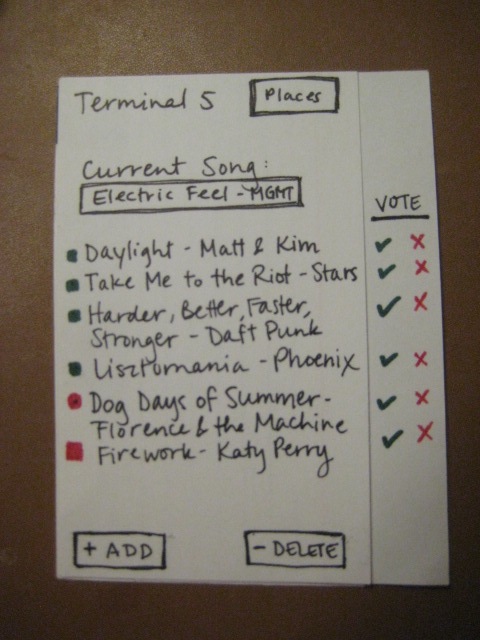 Terminal 5
Places
Current Song:
Electric Feel - MGMT
VOTE
Daylight - Matt & Kim
Take Me to the Riot - Stars
Harder, Better, Faster,
Stronger - Daft Punk
Lisztomania - Phoenix
Dog Days of Summer -
Florence & the Machine
Firework - Katy Perry
+ ADD
- DELETE